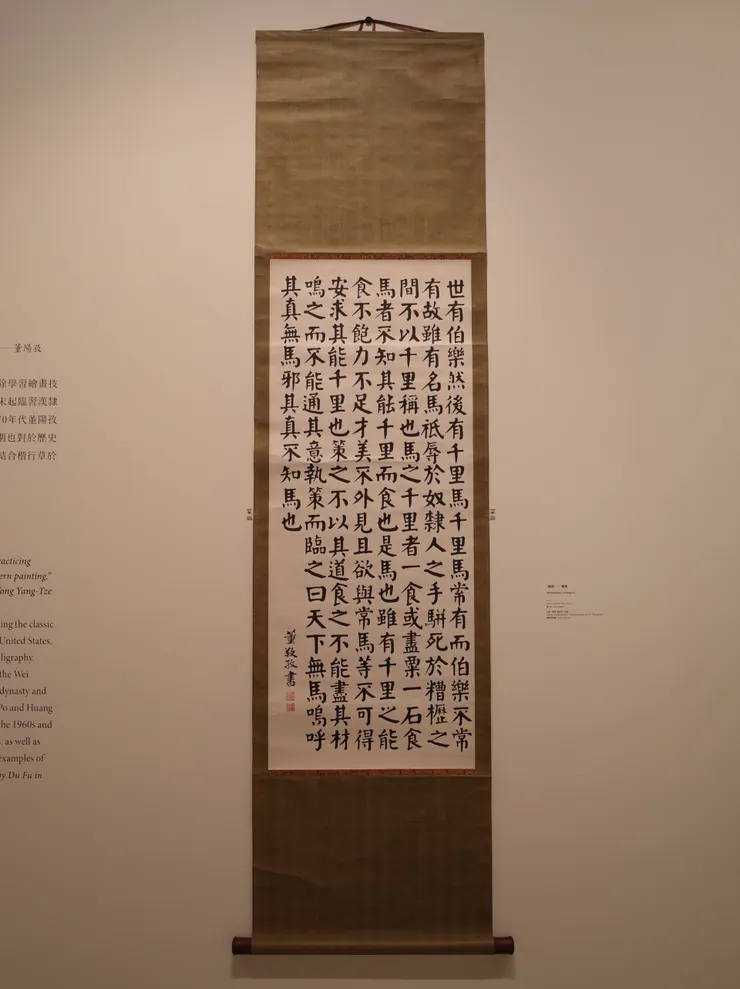 世有伯樂然後有千里馬千里馬常有而伯樂不常
有故雖有名馬祗辱於奴隸人之手駢死於糟櫪之
間不以千里稱也馬之千里者一食或盡粟一石食
馬者不知其能千里而食也是馬也雖有千里之能
食不飽力不足才美不外見且欲與常馬等不可得
安求其能千里也策之不以其道食之不能盡其材
鳴之而不能通其意執策而臨之曰天下無馬嗚呼
其真無馬邪其真不知馬也
董敭孜書
——董陽孜
除學習繪畫技
末起臨習漢隸
70年代董陽孜
期也對於歷史
結合楷行草於
racticing
ern painting."
Tong Yang-Tze
ing the classic
United States.
ligraphy.
the Wei
dynasty and
Po and Huang
he 1960s and
, as well as
examples of
by Du Fu in